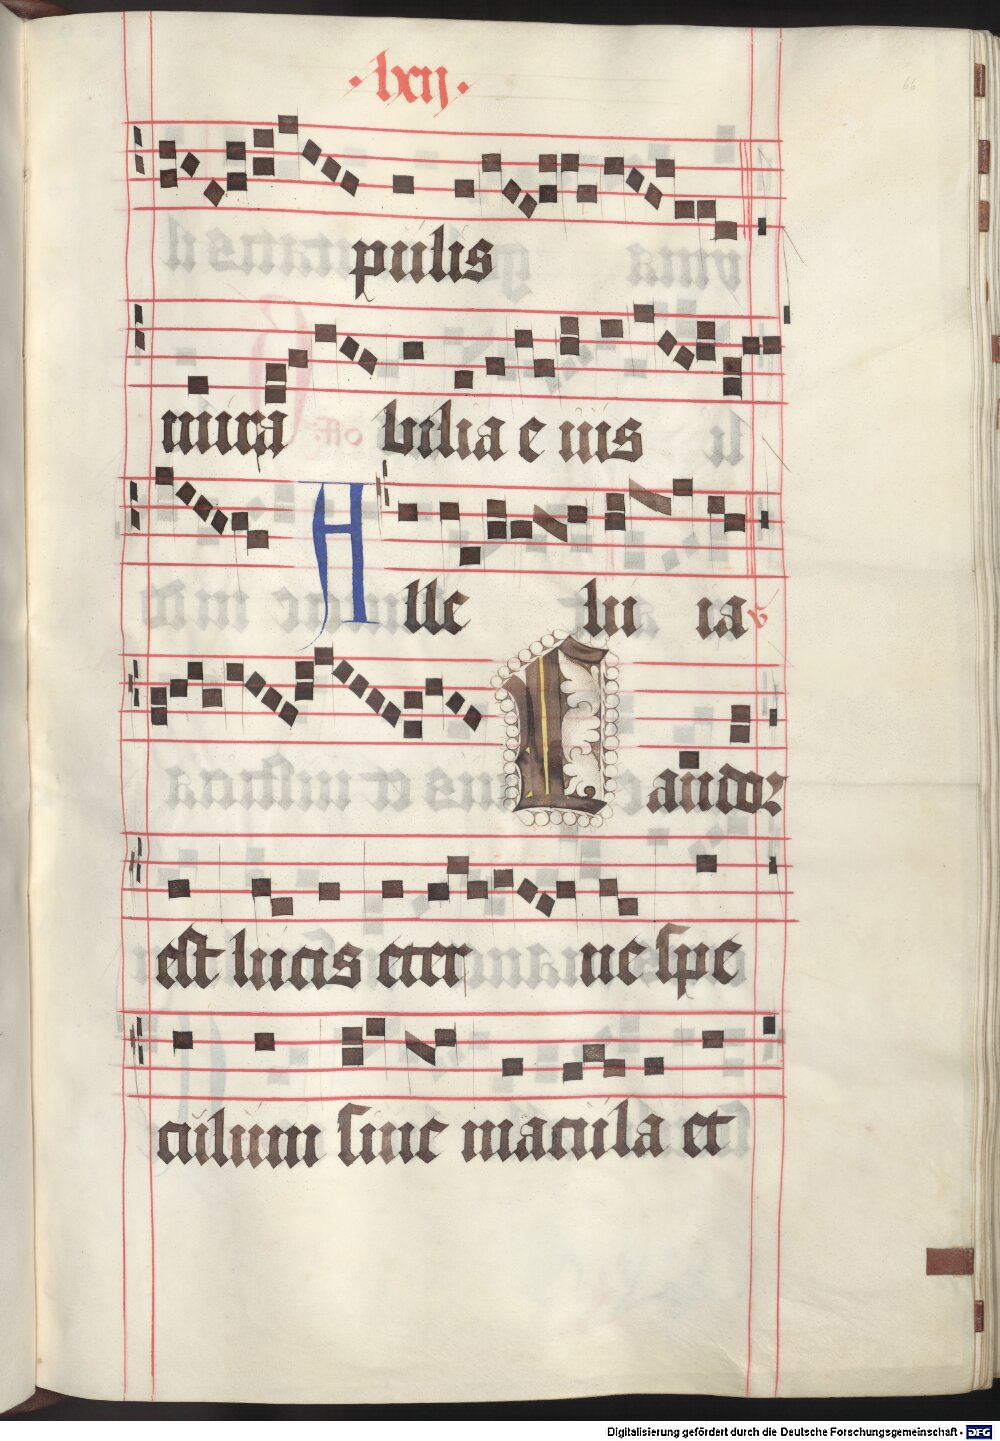 ·lxij·
66
pulis
mira bilia e ius
Alle lu ia ℣
Candor
est lucis eter ne spe
culum sine macula et
Digitalisierung gefördert durch die Deutsche Forschungsgemeinschaft - DFG